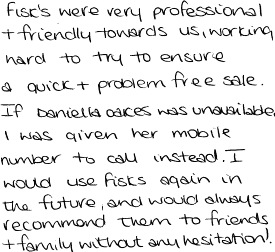 Fisk's were very professional
+ friendly towards us, working
hard to try to ensure
a quick + problem free sale.
If Daniella oakes was unavailable,
I was given her mobile
number to call instead. I
would use fisks again in
the future, and would always
recommend them to friends
+ family without any hesitation!